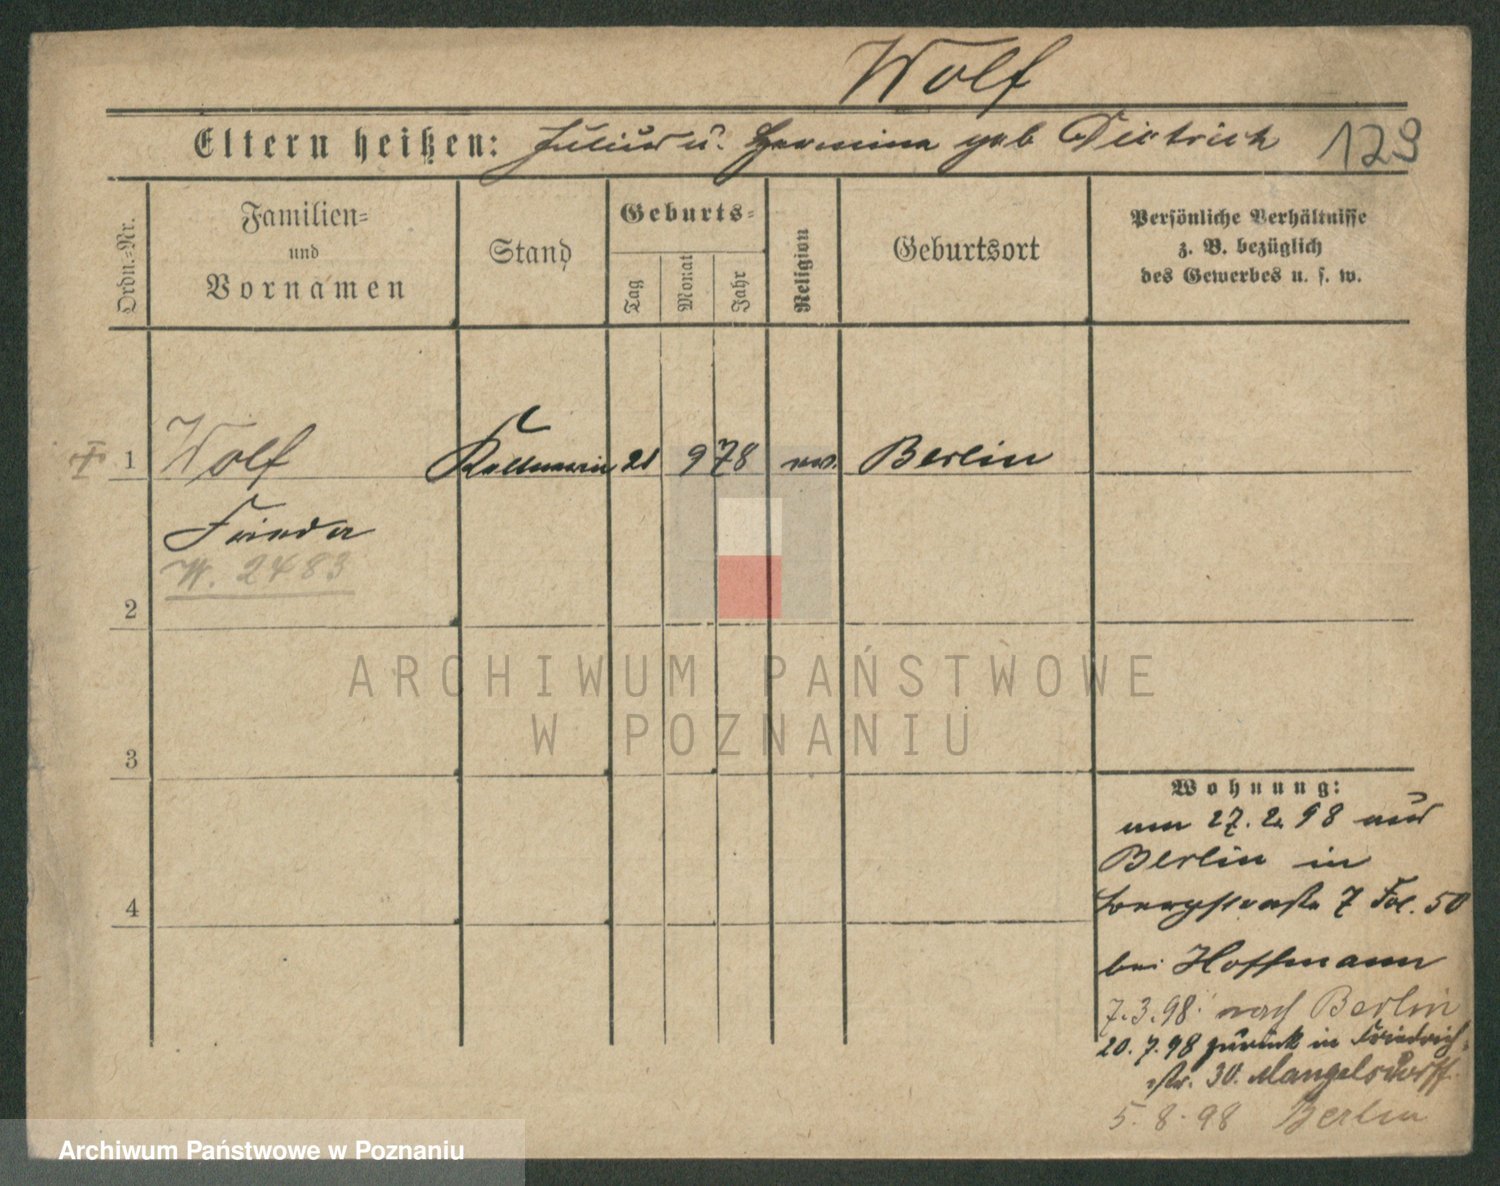 Wolf
Eltern heißen: Julius u. Hermine geb Dietrich 129
Ordn.-Nr.
Familien- und Vornamen
Stand
Geburts-
Tag
Monat
Jahr
Religion
Geburtsort
Persönliche Verhältnisse
z. B. bezüglich
des Gewerbes u. s. w.
1 Wolf Kellnerin 21 9 78 ev. Berlin
Frieda
W. 2483
2
3
4
Wohnung:
am 27. 2. 98 aus
Berlin in
7 Fol. 50
bei Hoffmann
7.3.98. nach Berlin
20. 7. 98 zurück in Friedrich-
str. 30. Mangelsdorff
5. 8. 98 Berlin
ARCHIWUM PAŃSTWOWE
W POZNANIU
Archiwum Państwowe w Poznaniu